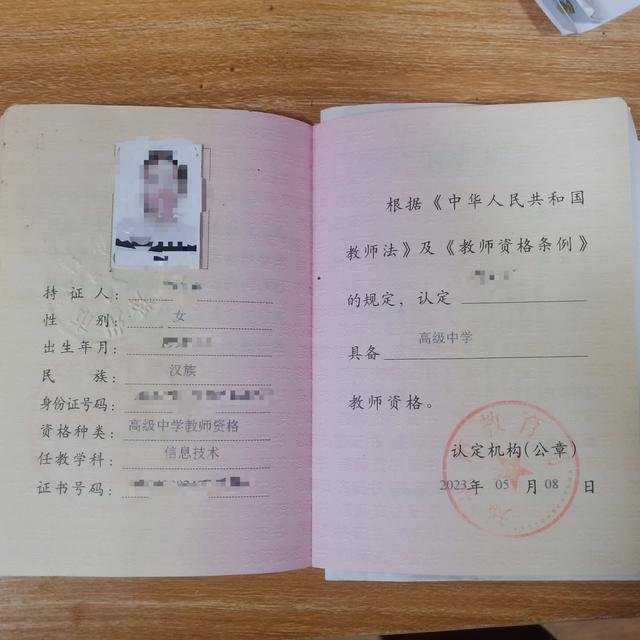 持 证 人：
性 别： 女
出生年月：
民 族： 汉族
身份证号码：
资格种类：高级中学教师资格
任教学科： 信息技术
证书号码：
根据《中华人民共和国
教师法》及《教师资格条例》
的规定，认定
具备 高级中学
教师资格。
认定机构(公章)
2023年 05 月 08 日